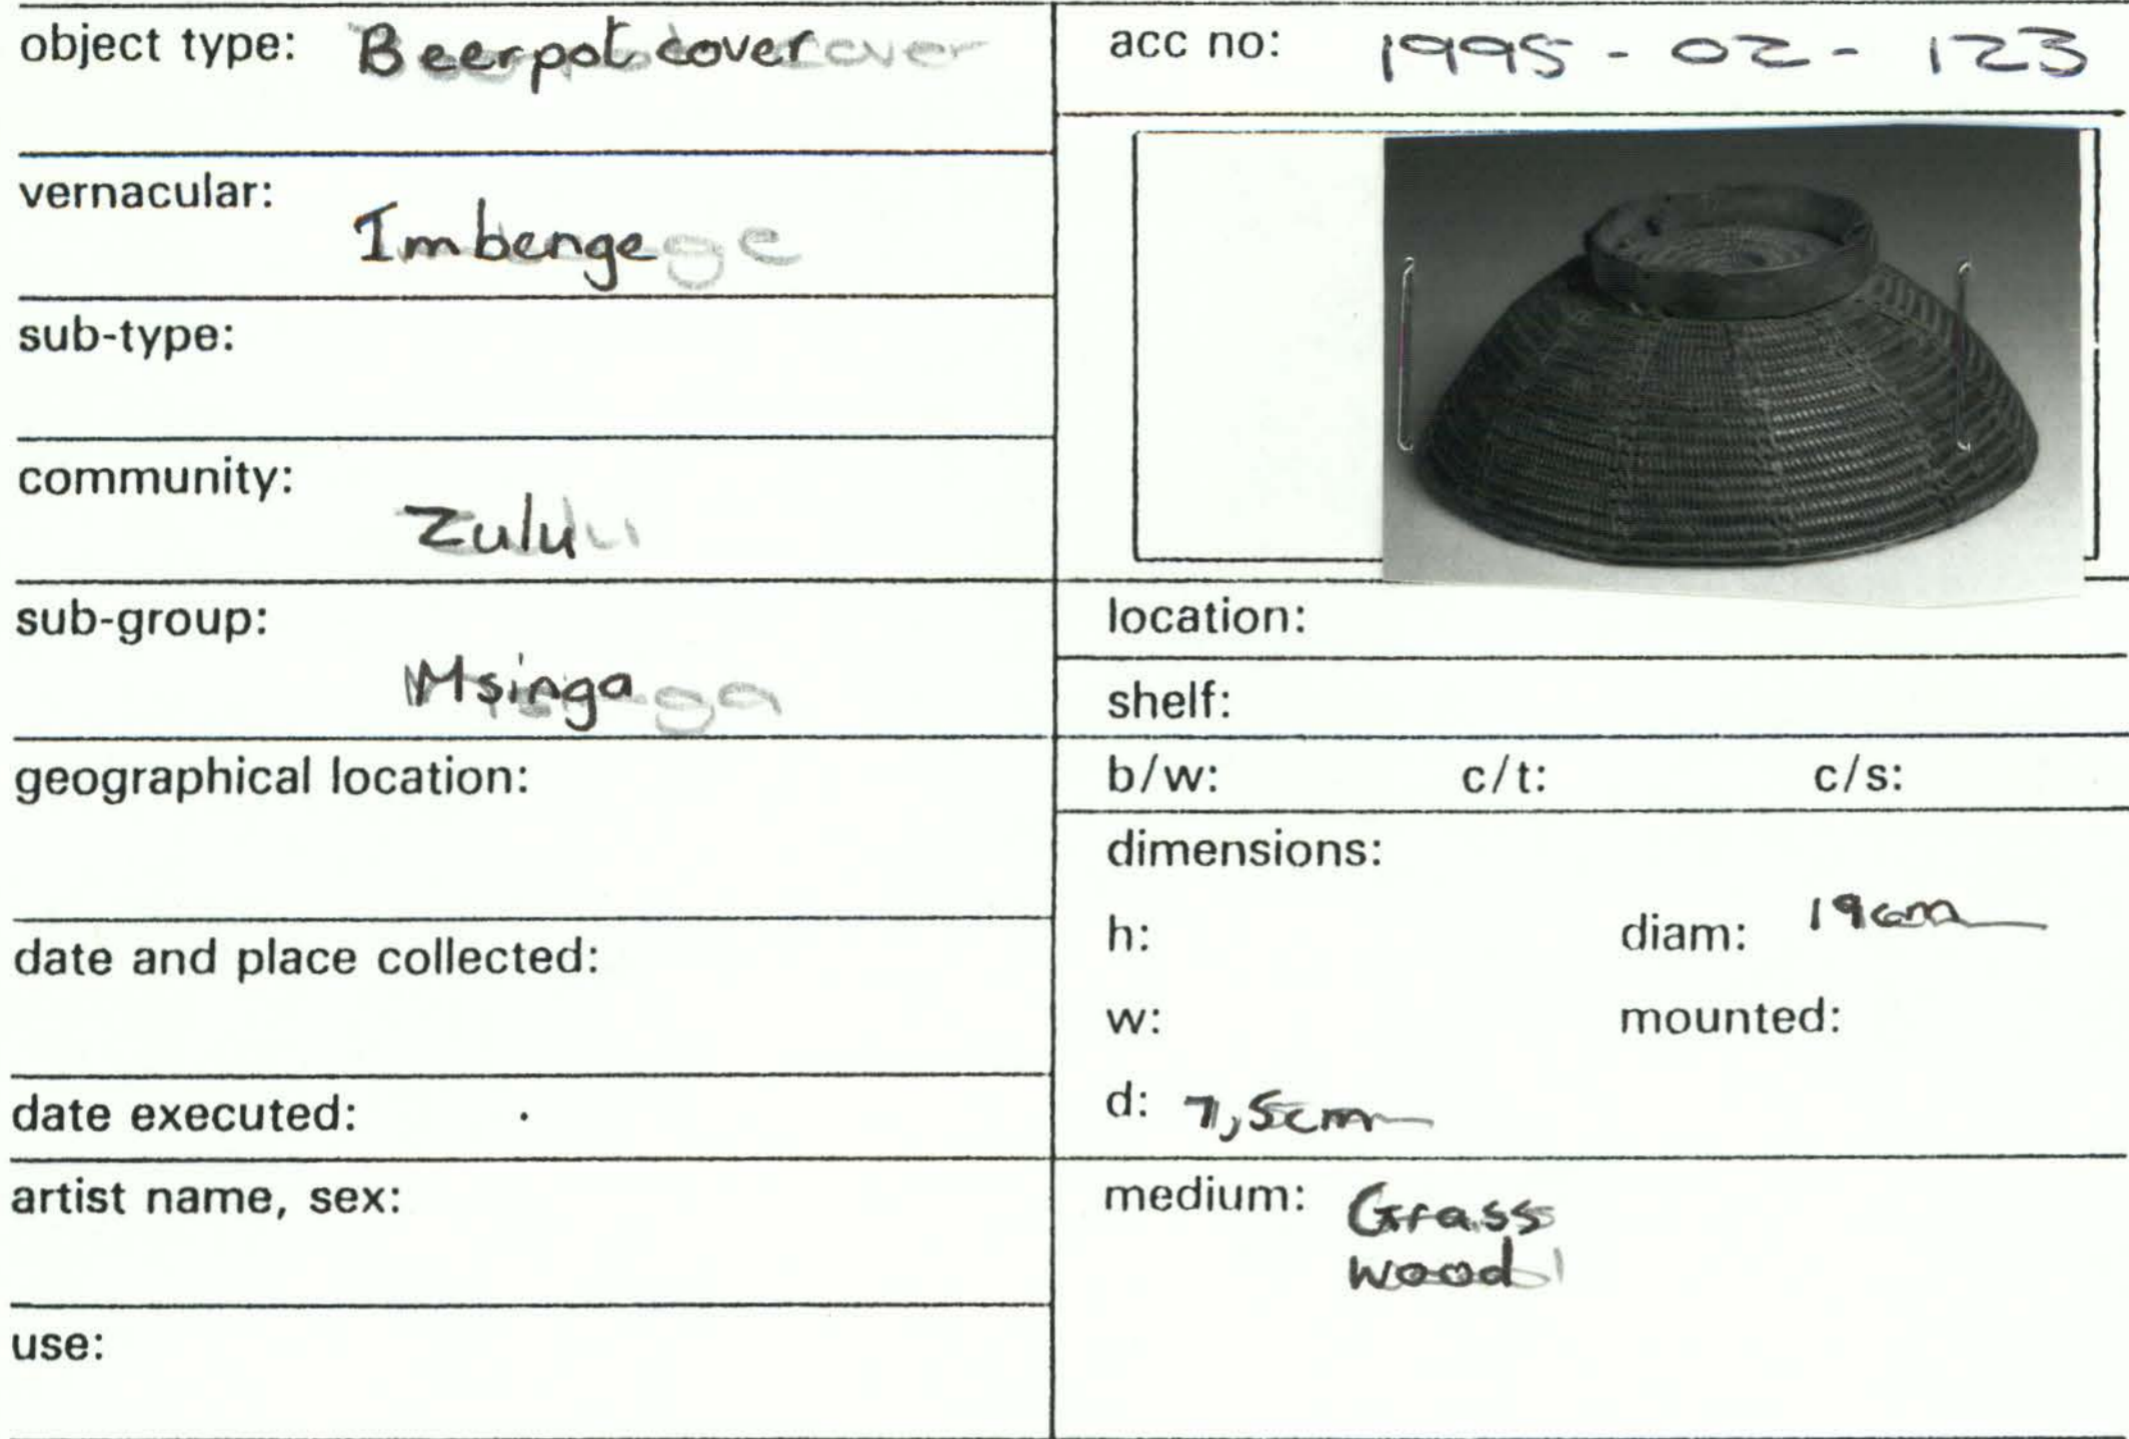 object type: Beerpot cover
vernacular:
Imbenge
sub-type:
community:
Zulu
sub-group:
Msinga
geographical location:
date and place collected:
date executed:
artist name, sex:
use:
acc no: 1995 - 02 - 123
location:
shelf:
b/w: c/t: c/s:
dimensions:
h: diam: 19cm
w: mounted:
d: 7,5cm
medium: Grass
wood